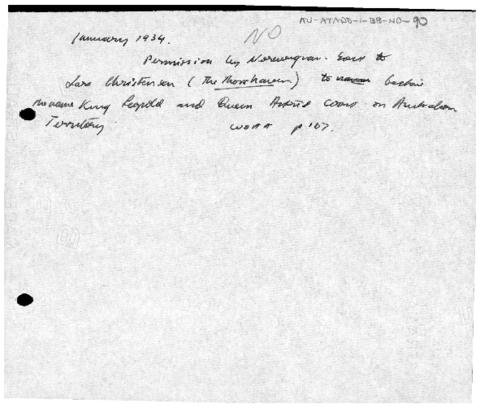 AU-ATADD-1-BB-NO-90
NO
January 1934.
Permission by Norwegian Govt to
Lars Christensen (The Thorshaven) to
the name King Leopold and Queen Astrid Coast on Australian
Territory p 107.